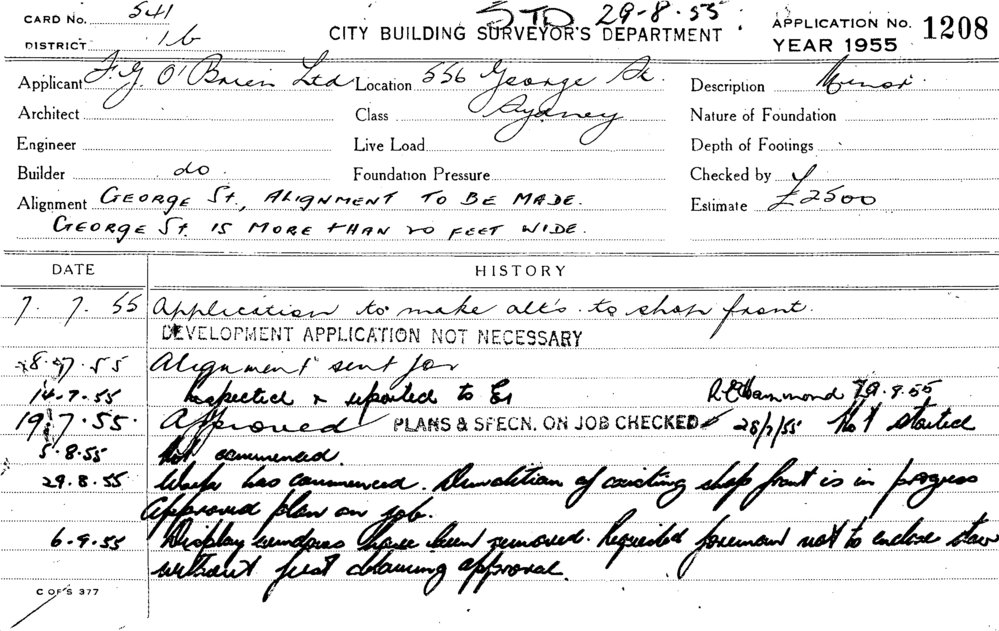 CARD No. 541
STD 29-8-55
DISTRICT 16
CITY BUILDING SURVEYOR'S DEPARTMENT
APPLICATION No. 1208
YEAR 1955
Applicant F.G. O'Brien Ltd Location 556 George St. Description Minor
Architect Class Sydney Nature of Foundation
Engineer Live Load Depth of Footings
Builder do Foundation Pressure Checked by
Alignment GEORGE ST., ALIGNMENT TO BE MADE. Estimate £2500
GEORGE ST. IS MORE THAN 20 FEET WIDE.
DATE HISTORY
7. 7. 55 Application to make alt's. to shop front.
DEVELOPMENT APPLICATION NOT NECESSARY
8.7.55 Alignment sent for
14.7.55 Inspected & reported to R.E. Hammond
19.7.55. Approved PLANS & SPECN. ON JOB CHECKED 28/7/55 Not started
5.8.55 Not commenced.
29.8.55 Work has commenced. Demolition of existing shop front is in progress
Approved plan on job.
6.9.55 Display windows have been removed. Requested foreman not to enclose
without first obtaining approval.
C OF S 377